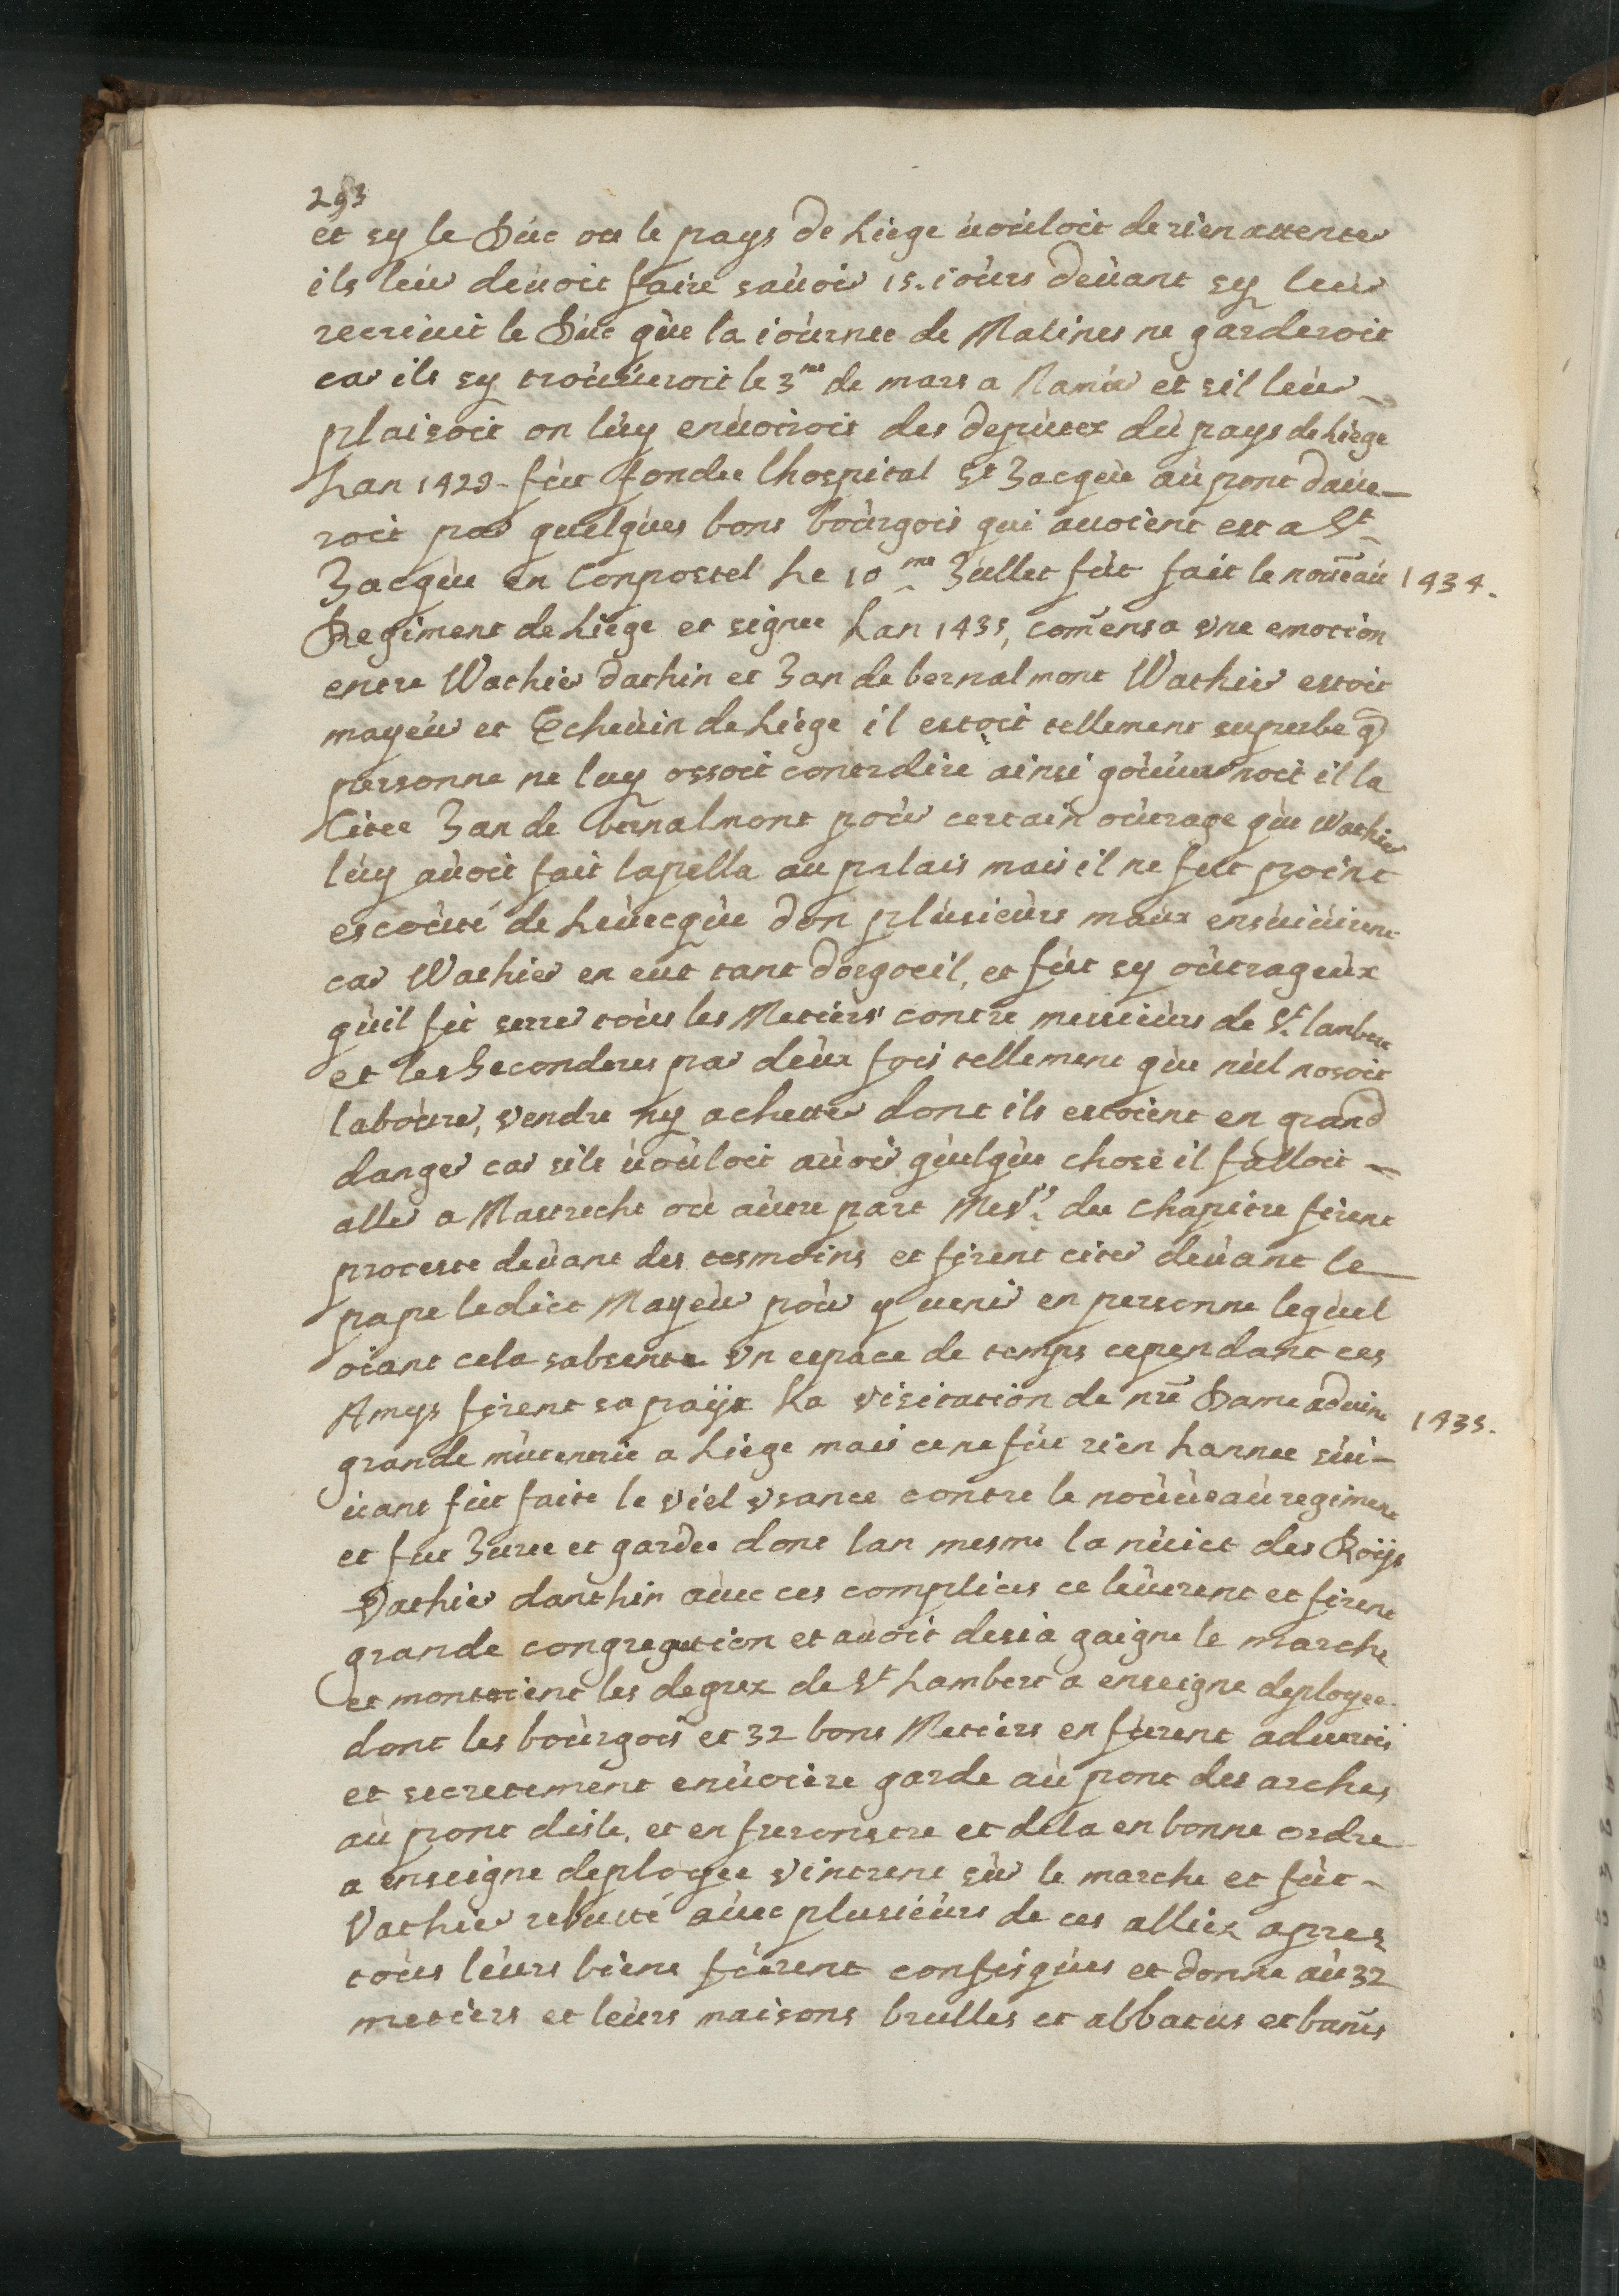 293
et sy le Duc ou le pays de Liege uouloit de rien attenter
ils leur deuoit faire sauoir 15. iours deuant sy leur
recriuit le Duc que la iournee de Malines ne garderoit
car ils sy trouueroit le 3me de mars a Namur et sil leur
plaisoit on luy enuoiroit des deputez du pays de Liege
Lan 1429 - fut fondee lhospital St Jacque au pont daue-
roit par quelques bons bourgois qui auoient est a St
Jacque en Conpostel Le 10me Jullet fut fait le nouueau 1434.
Regiment de Liege et signee Lan 1435, comensa vne emotion
entre Wathier dathin et Jan de bernalmont Wathier estoit
mayeur et Escheuin de Liege il estoit tellement superbe q
personne ne luy ossoit contrdire ainsi gouuernoit il la
Citee Jan de bernalmont pour certain outrage que Wathier
luy auoit fait lapella au palais mais il ne fut point
escouté de Leuecque don plusieurs maux ensuiuirent
car Wathier en eut tant dorgoeil, et fut sy outrageux
quil fit serrer tous les Metiers contre messieurs de St. lambert
et les Seconderes par deux fois tellement que nul nosoit
labourer, vendre ny achetter dont ils estoient en grand
danger car sils uouloit auoir quelque chose il falloit -
aller a Mastrecht ou autre part Mesrs. du Chapitre firent
proteste deuant des tesmoins et firent citer deuant le
pape ledict Mayeur pour y uenir en personne lequel
oiant cela sabsenta vn espace de temps cependant ces
Amys firent sa paÿx La visitation de nre Dame aduint 1435.
grande mutenerie a Liege mais ce ne fut rien Lannee sui-
uant fut faite le viel vsance contre le nouueau regiment
et fut Juree et gardee dont lan mesme la nuict des Roÿs
Vathier danthin auec ces complices ce leuerent et firent
grande congregation et auoit desia gaigne le marche
et montoient les degrez de St Lambert a enseigne deployee
dont les bourgois et 32 bons Metiers en furent aduertis
et secretement enuoiere garde au pont des arches
au pont disle, et en freronstre et dela en bonne ordre
a enseigne deployee vintrent sur le marche et fut -
Vathier rebutté auec plusieurs de ces alliez apres
tous leurs biens furent confisques et donne au 32
metiers et leurs maisons brulles et abbatus et banis